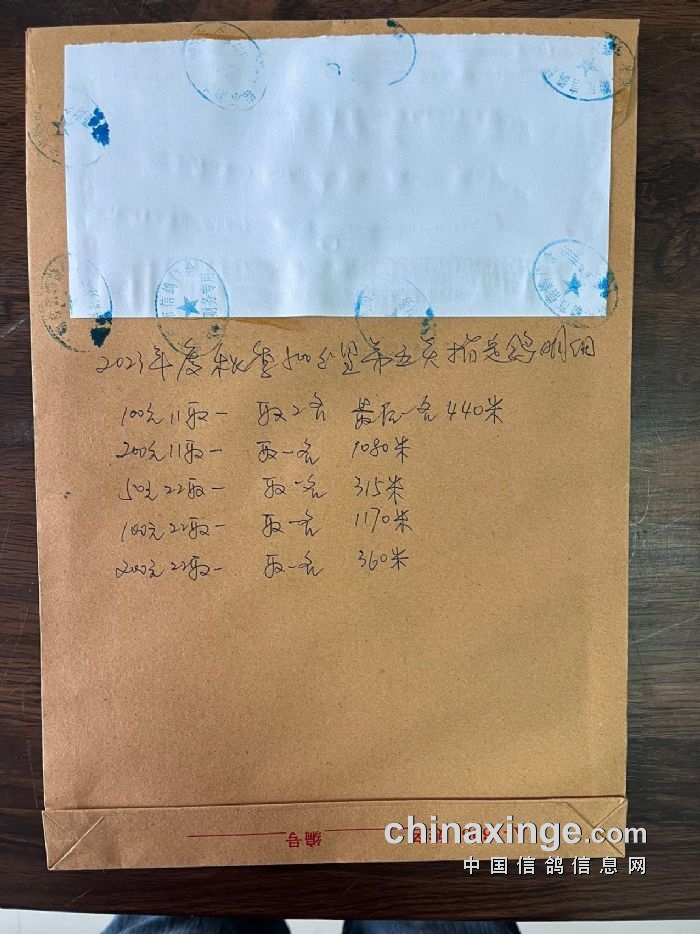 信鸽
财务专用
2023年度秋季500公里第五关指定鸽明细
100元11取一 取2名 最后一名440米
200元11取一 取一名 1080米
50元22取一 取一名 315米
100元22取一 取一名 1170米
200元22取一 取一名 360米
编号
chinaxinge.com
中国信鸽信息网